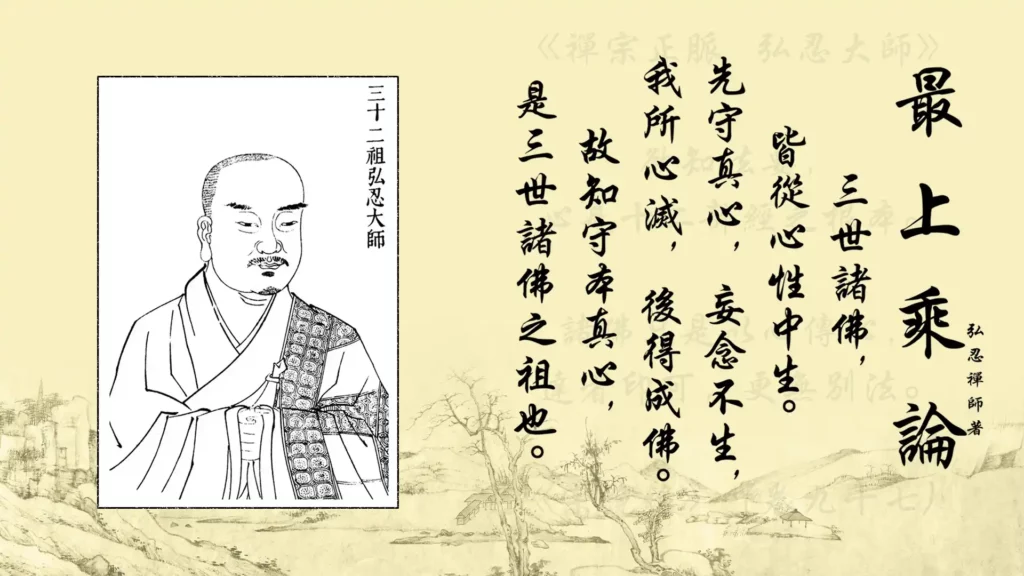 《禪宗正脈 弘忍大師》
最上乘論
弘忍禪師著
三世諸佛，
皆從心性中生。
先守真心，妄念不生，
我所心滅，後得成佛。
故知守本真心，
是三世諸佛之祖也。
三十二祖弘忍大師